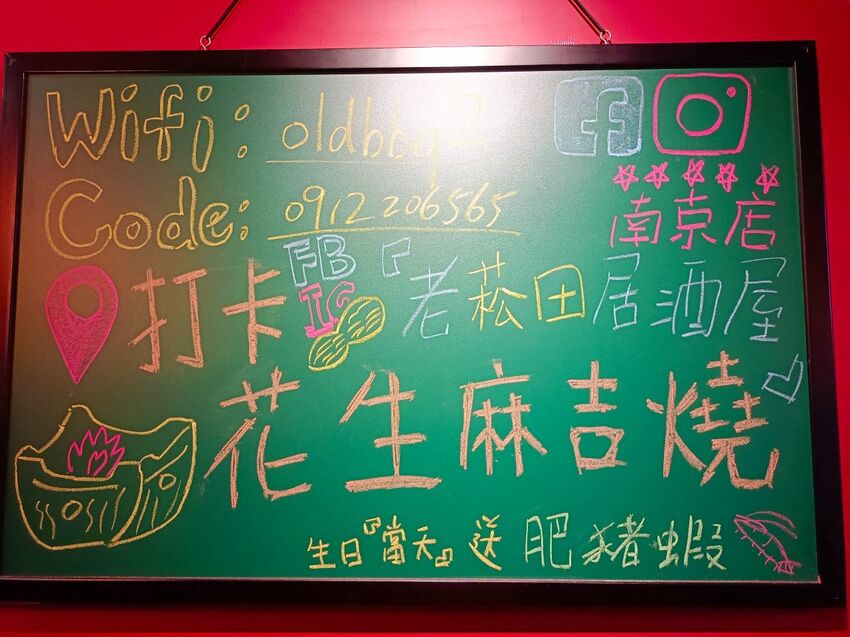 Wifi: oldbbq2
Code: 0912206565
南京店
打卡 FB IG 『老菘田居酒屋』
花生麻吉燒
生日『當天』送肥豬蝦